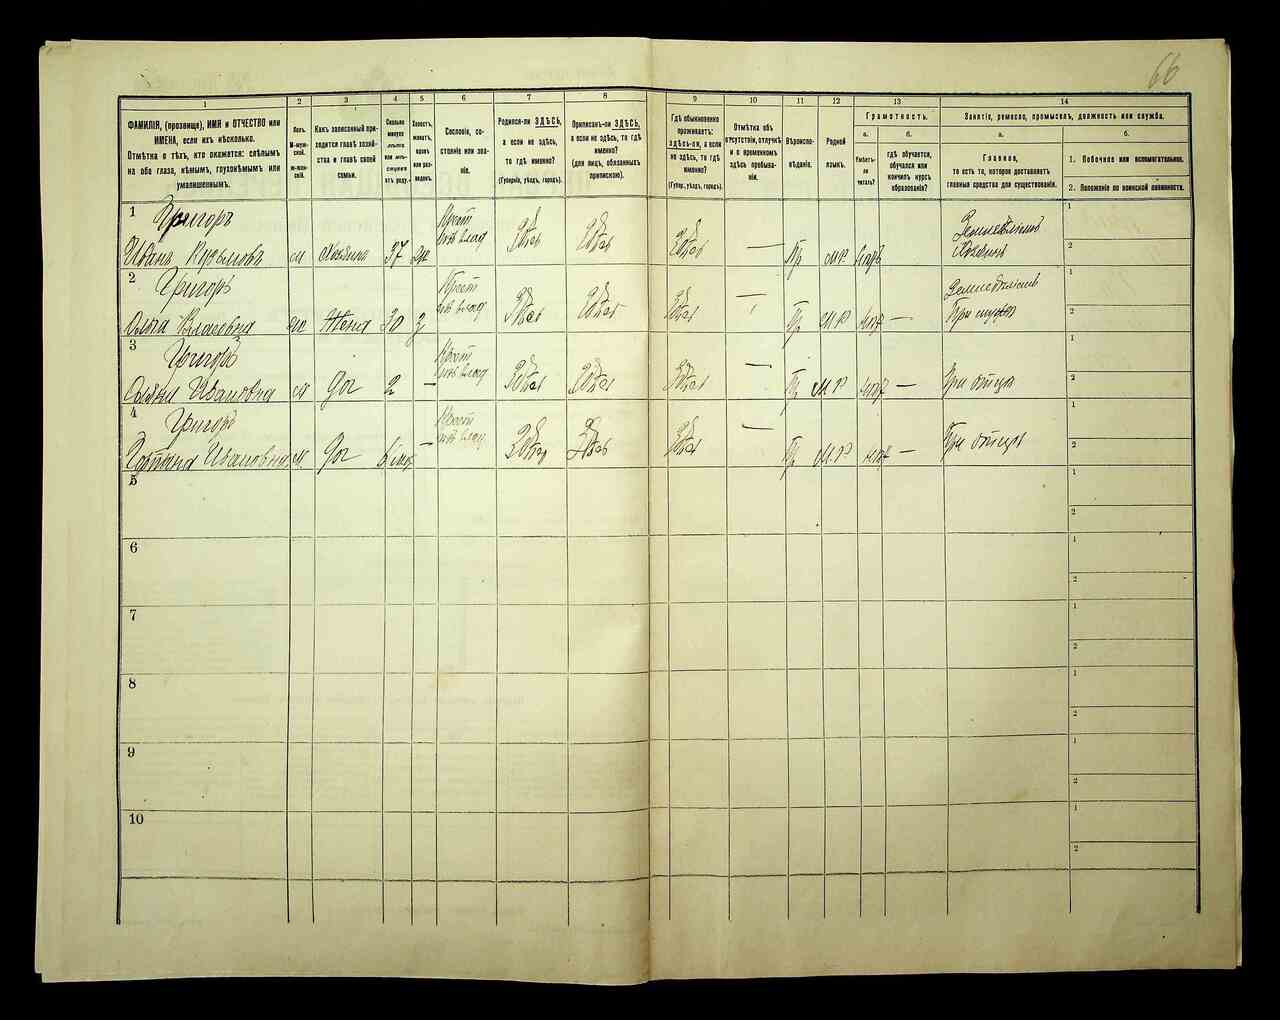 66
1
2
3
4
5
6
7
8
9
10
11
12
13
14
ФАМИЛІЯ, (прозвище), ИМЯ и ОТЧЕСТВО или
ИМЕНА, если ихъ нѣсколько.
Отмѣтка о тѣхъ, кто окажется: слѣпымъ
на оба глаза, нѣмымъ, глухонѣмымъ или
умалишеннымъ.
Полъ.
М-муж-
ской.
Ж-жен-
скій.
Какъ записанный при-
ходится главѣ хозяй-
ства и главѣ своей
семьи.
Сколько
минуло
лѣтъ
или мѣ-
сяцевъ
отъ роду.
Холостъ,
женатъ,
вдовъ
или раз-
веденъ.
Сословіе, со-
стояніе или зва-
ніе.
Родился-ли ЗДѢСЬ,
а если не здѣсь,
то гдѣ именно?
(Губернія, уѣздъ, городъ).
Приписанъ-ли ЗДѢСЬ,
а если не здѣсь, то гдѣ
именно?
(для лицъ, обязанныхъ
припискою).
Гдѣ обыкновенно
проживаетъ:
здѣсь-ли, а если
не здѣсь, то гдѣ
именно?
(Губер., уѣздъ, городъ).
Отмѣтка объ
отсутствіи, отлучкѣ
и о временномъ
здѣсь пребыва-
ніи.
Вѣроиспо-
вѣданіе.
Родной
языкъ.
Грамотность.
а.
Умѣетъ-
ли
читать?
б.
гдѣ обучается,
обучался или
кончилъ курсъ
образованія?
Занятіе, ремесло, промыселъ, должность или служба.
а.
Главное,
то есть то, которое доставляетъ
главныя средства для существованія.
б.
1. Побочное или вспомогательное.
2. Положеніе по воинской повинности.
1 Григоръ
Иванъ Кузьмовъ м Хозяинъ 37 Крест здѣсь здѣсь здѣсь — Пр М.Р Земледѣліемъ
Хозяинъ
1
2
2 Григоръ
Ольга Власевна ж Жена 30 Крест здѣсь здѣсь здѣсь — Пр М.Р — Земледѣліемъ
При
1
2
3 Григоръ
Ивановна доч 2 — Крест здѣсь здѣсь здѣсь — Пр М.Р — При отцѣ
1
2
4 Григоръ
Ивановна доч 6 мѣс — Крест здѣсь здѣсь здѣсь — Пр М.Р — При отцѣ
1
2
5
1
2
6
1
2
7
1
2
8
1
2
9
1
2
10
1
2